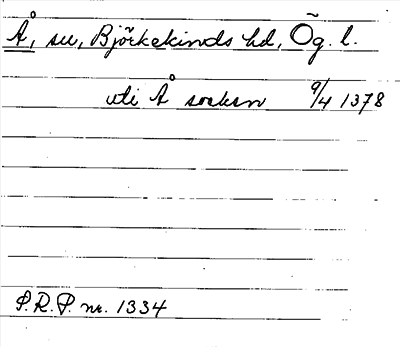 Å, sn, Björkekinds hd, Ög. l.
uti Å sokn 9/4 1378
P.R.P. nr. 1334